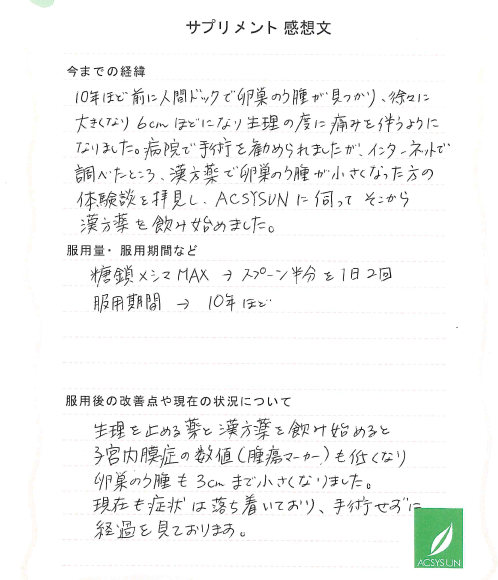 サプリメント 感想文
今までの経緯
10年ほど前に人間ドックで卵巣のう腫が見つかり、徐々に
大きくなり 6cmほどになり生理の度に痛みを伴うように
なりました。病院で手術を勧められましたが、インターネットで
調べたところ、漢方薬で卵巣のう腫が小さくなった方の
体験談を拝見し、ACSYSUNに伺って そこから
漢方薬を飲み始めました。
服用量・服用期間など
糖鎖メシマMAX → スプーン半分を1日2回
服用期間 → 10年ほど
服用後の改善点や現在の状況について
生理を止める薬と漢方薬を飲み始めると
子宮内膜症の数値(腫瘍マーカー)も低くなり
卵巣のう腫も3cmまで小さくなりました。
現在も症状は落ち着いており、手術せずに
経過を見ております。
ACSYSUN